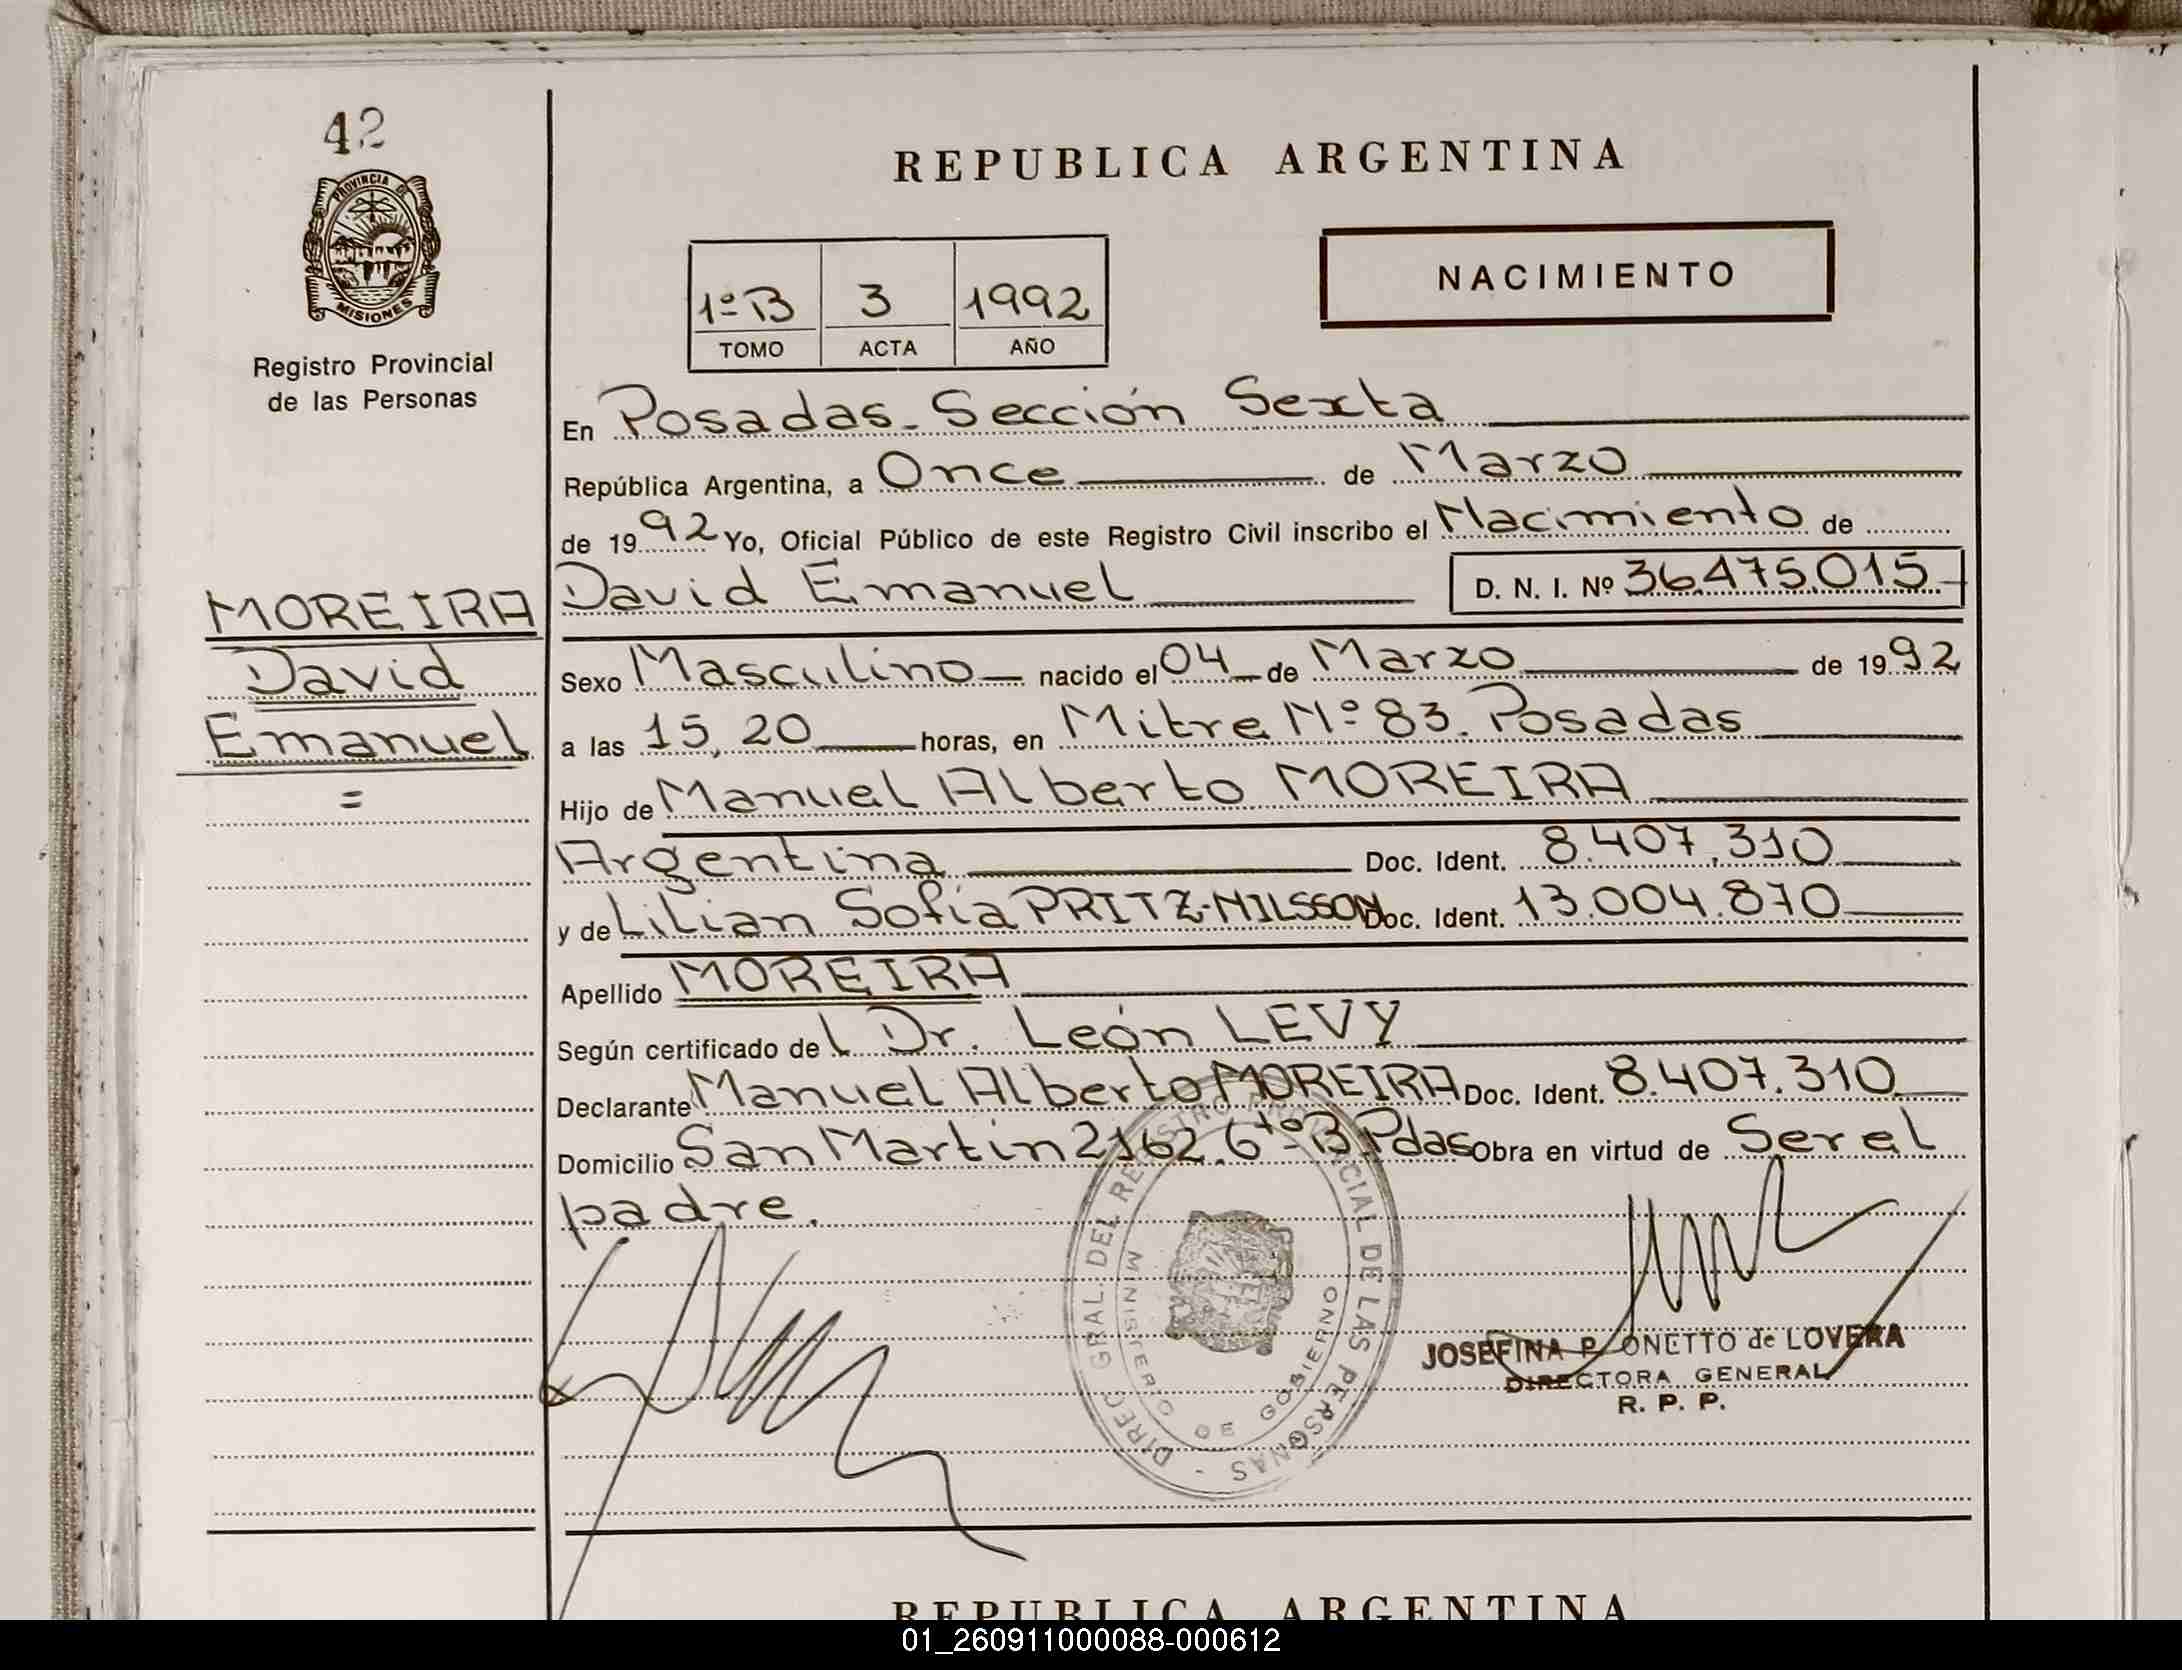 42
PROVINCIA DE
MISIONES
Registro Provincial
de las Personas
MOREIRA
David
Emanuel
=
REPUBLICA ARGENTINA
1º B 3 1992
TOMO ACTA AÑO
NACIMIENTO
En Posadas - Sección Sexta
República Argentina, a Once de Marzo
de 1992 Yo, Oficial Público de este Registro Civil inscribo el Nacimiento de
David Emanuel D. N. I. Nº 36.475.015
Sexo Masculino nacido el 04 de Marzo de 1992
a las 15,20 horas, en Mitre Nº 83. Posadas
Hijo de Manuel Alberto MOREIRA
Argentina Doc. Ident. 8.407.310
y de Lilian Sofía PRITZ-NILSSON Doc. Ident. 13.004.870
Apellido MOREIRA
Según certificado del Dr. León LEVY
Declarante Manuel Alberto MOREIRA Doc. Ident. 8.407.310
Domicilio San Martín 2162. 6to B. Pdas Obra en virtud de Ser el
padre.
DIREC GRAL. DEL REGISTRO PROVINCIAL DE LAS PERSONAS -
MINISTERIO DE GOBIERNO
JOSEFINA P. ONETTO de LOVERA
DIRECTORA GENERAL
R. P. P.
REPUBLICA ARGENTINA
01_260911000088-000612